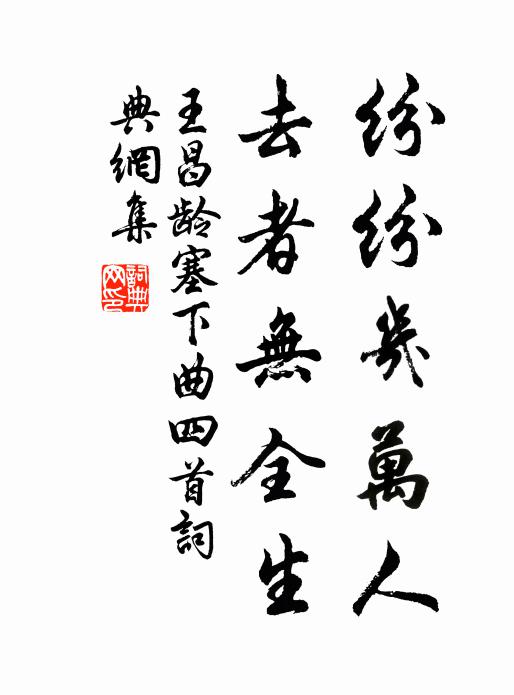 紛紛幾萬人
去者無全生
王昌齡塞下曲四首詞
典網集
詞典網印